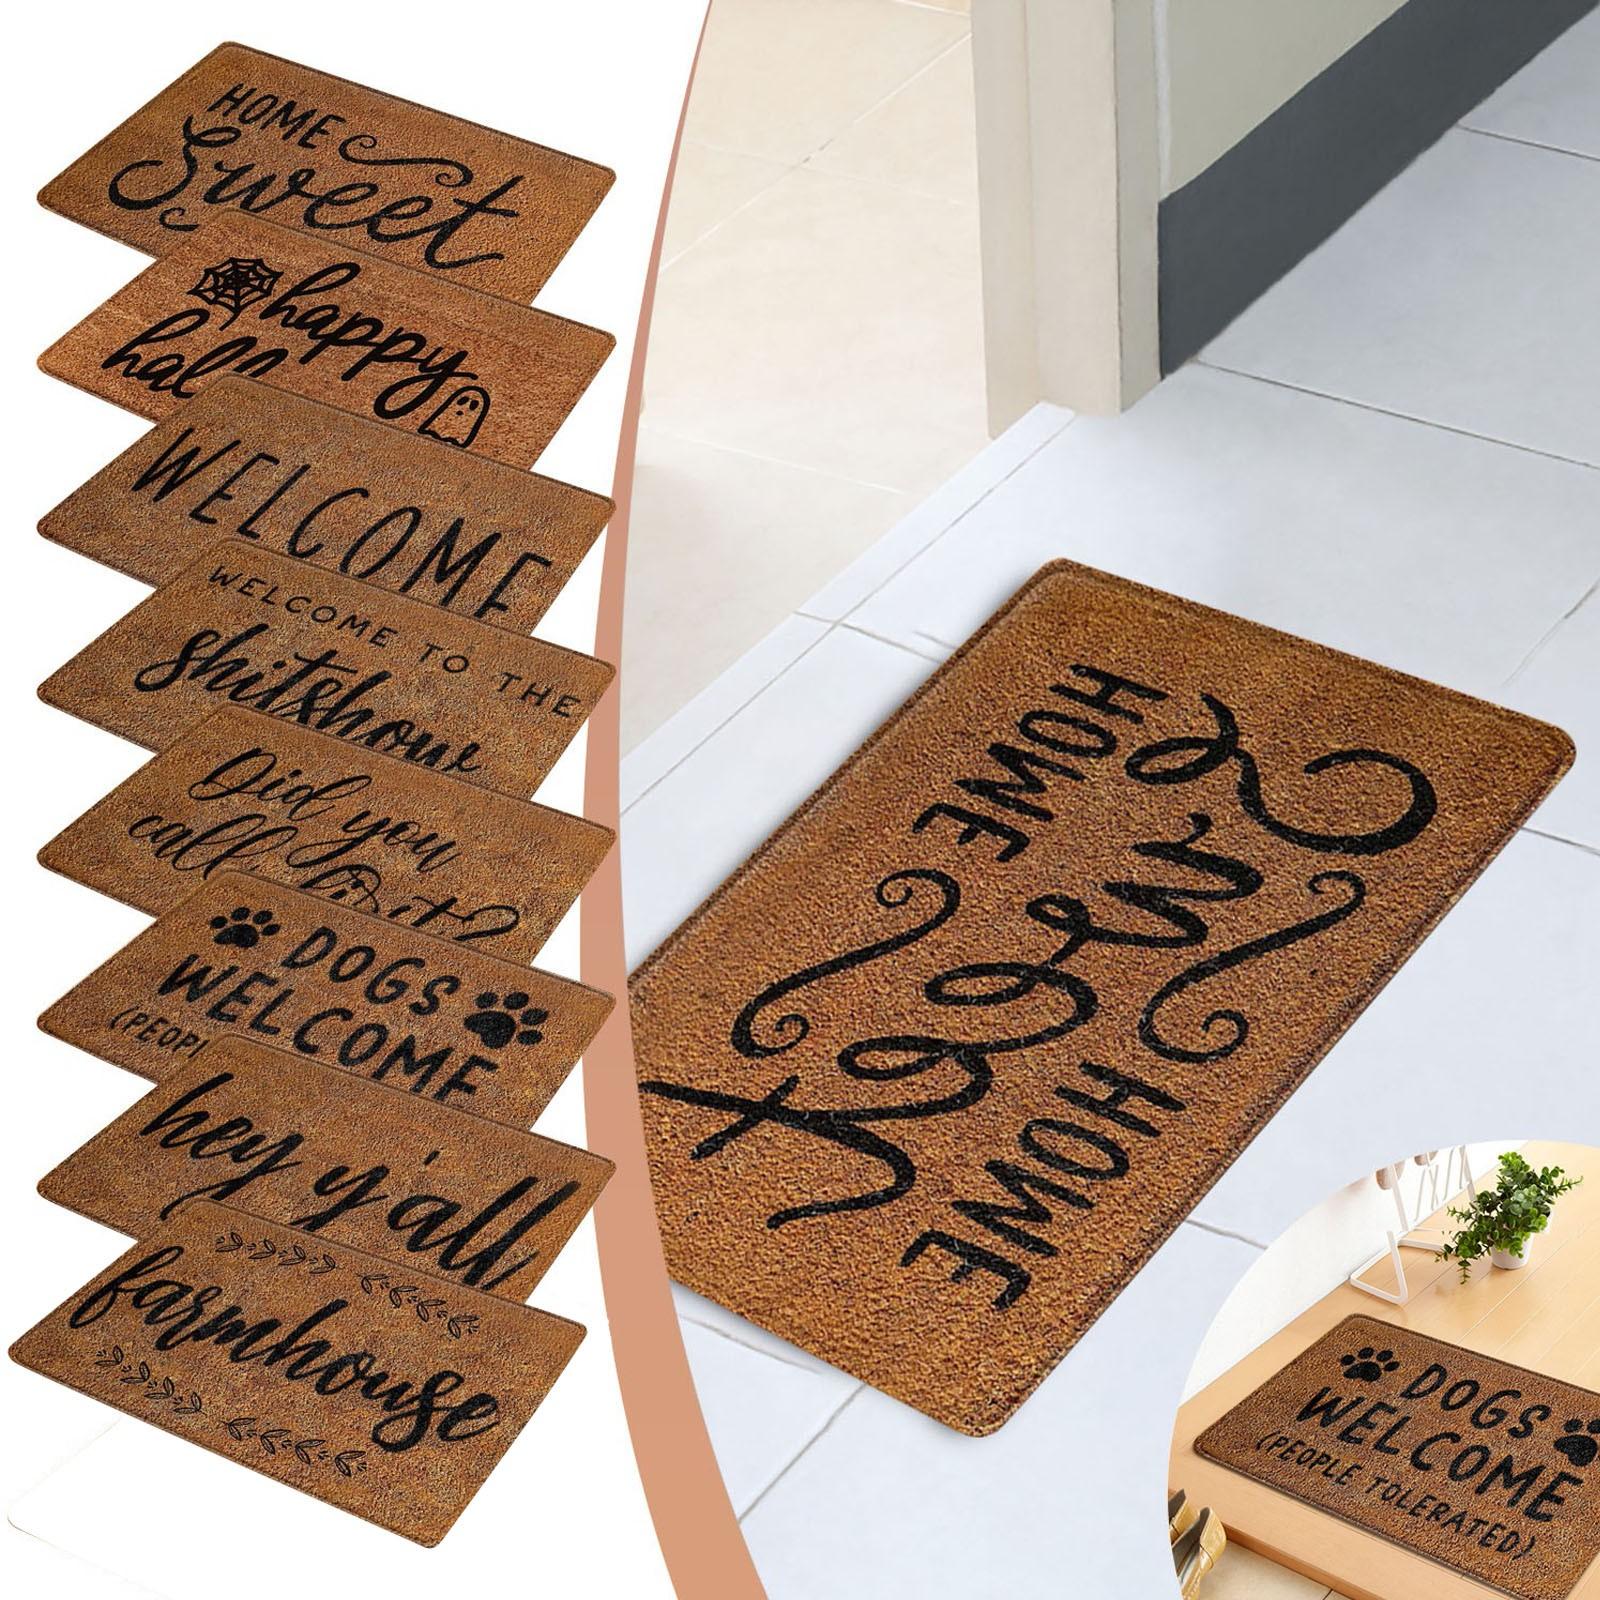 HOME
Sweet
happy
WELCOME
WELCOME TO THE
shitshow
Did you
call
DOGS
WELCOME
hey y'all
farmhouse
HOME
Sweet
HOME
DOGS
WELCOME
(PEOPLE TOLERATED)